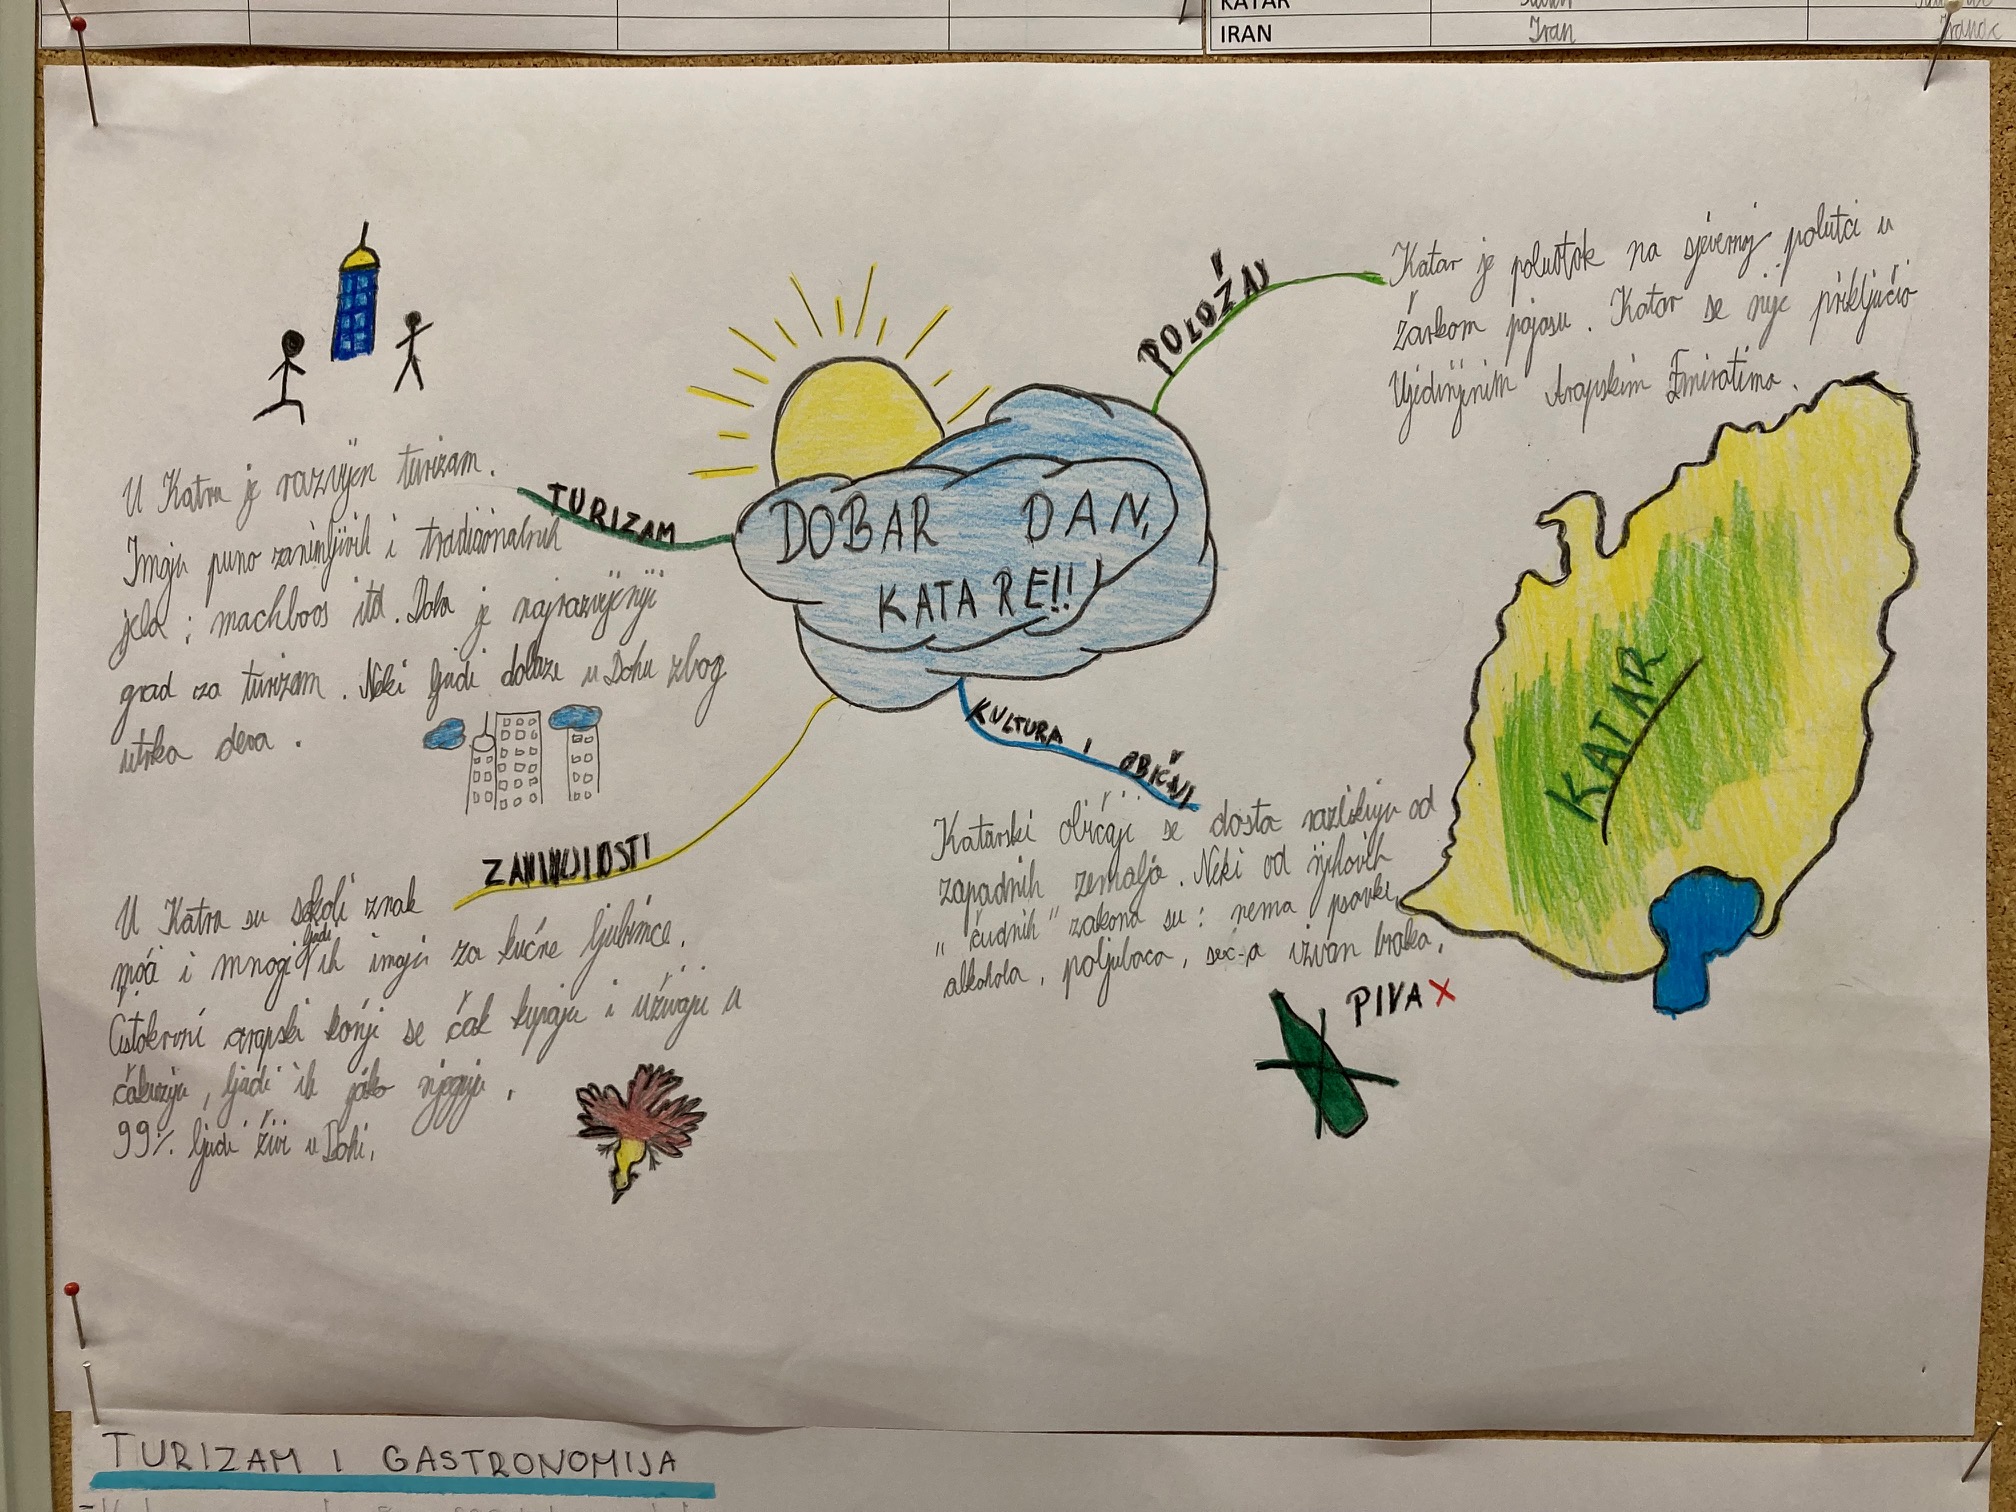 KATAR
IRAN Iran
DOBAR DAN,
KATARE!!
TURIZAM
U Katru je razvijen turizam.
Imaju puno zanimljivih i tradicionalnih
jela: machboos itd. Doha je najrazvijeniji
grad za turizam. Neki ljudi dolaze u Dohu zbog
utrka deva.
POLOŽAJ
Katar je poluotok na sjevernoj polutci u
žarkom pojasu. Katar se nije priključio
Ujedinjenim Arapskim Emiratima.
KATAR
ZANIMLJIVOSTI
U Katru su sokoli znak
moći i mnogi ljudi ih imaju za kućne ljubimce.
Čistokrvni arapski konji se čak kupaju i uživaju u
čakuziju, ljudi ih jako njeguju.
99% ljudi živi u Dohi.
KULTURA I OBIČAJI
Katarski običaji se dosta razlikuju od
zapadnih zemalja. Neki od njihovih
"čudnih" zakona su: nema psovki,
alkohola, poljubaca, sex-a izvan braka.
PIVA X
TURIZAM I GASTRONOMIJA